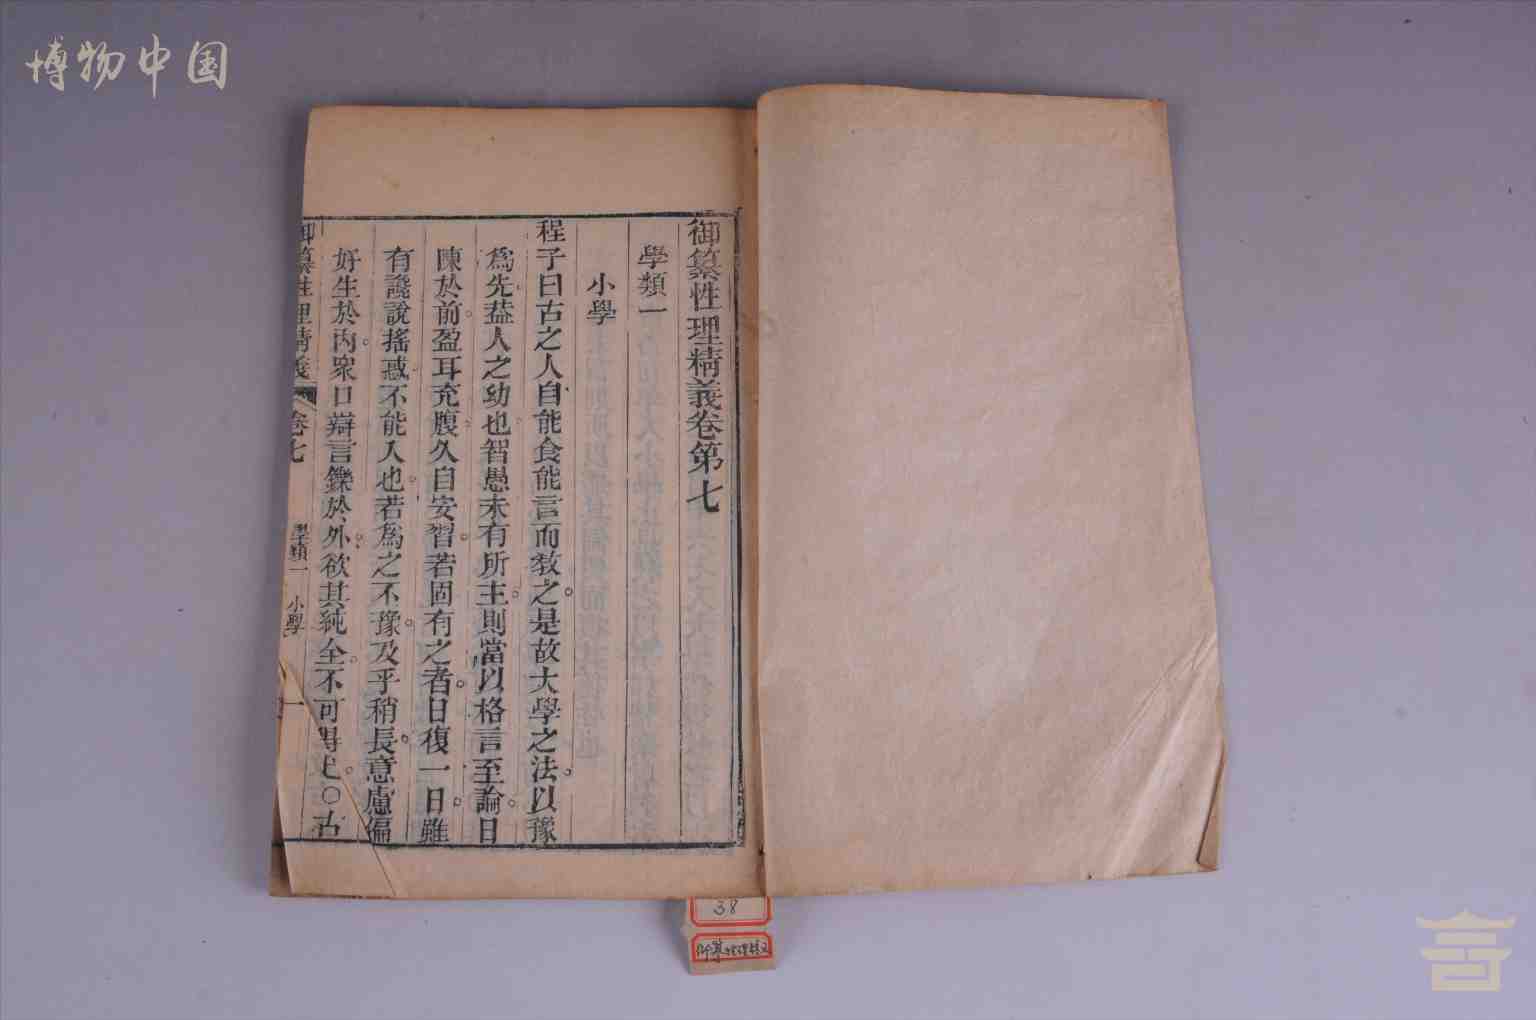 博物中国
御纂性理精義卷第七
學類一
小學
程子曰古之人自能食能言而敎之。是故大學之法。以豫
爲先。葢人之幼也。智愚未有所主。則當以格言至論。日
陳於前。盈耳充腹。久自安習。若固有之者。日復一日。雖
有讒說搖惑。不能入也。若爲之不豫。及乎稍長。意慮偏
好生於內。眾口辯言鑠於外。欲其純全。不可得已。○古
御纂性理精義
卷七
學類一 小學
一
38
御纂性理精义